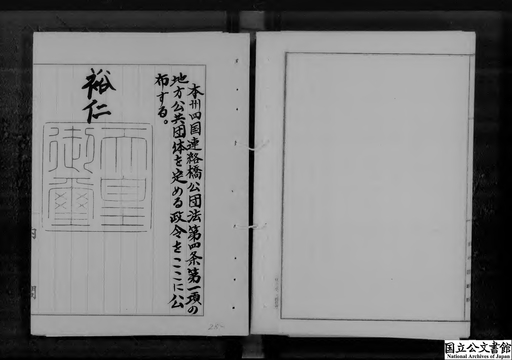 本州四国連絡橋公団法第四条第一項の
地方公共団体を定める政令をここに公
布する。
裕仁
天皇
御璽
国立公文書館
National Archives of Japan